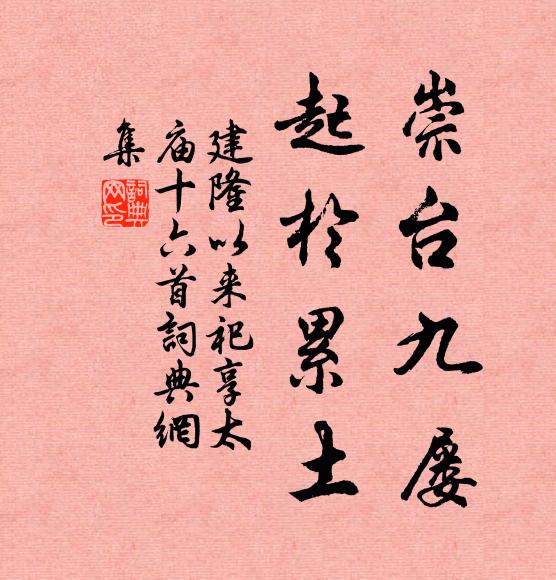 崇台九屡
起於累土
建隆以来祀享太
庙十六首詞典網
集
詞典
网印